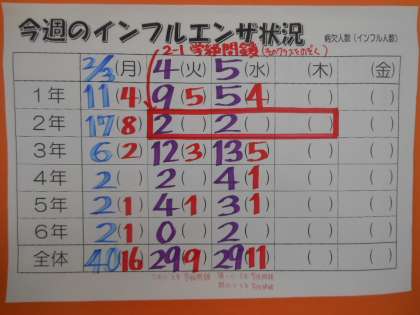 今週のインフルエンザ状況 病欠人数(インフル人数)
2-1 学級閉鎖
2/3(月) 4(火) 5(水) (木) (金)
1年 11(4) 9(5) 5(4) ( ) ( )
2年 17(8) 2( ) 2( ) ( ) ( )
3年 6(2) 12(3) 13(5) ( ) ( )
4年 2( ) 2( ) 4(1) ( ) ( )
5年 2(1) 4(1) 3(1) ( ) ( )
6年 2(1) 0( ) 2( ) ( ) ( )
全体 40(16) 29(9) 29(11) ( ) ( )